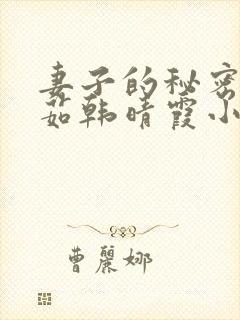 妻子的秘密
茹韩晴霞小
曹麗娜